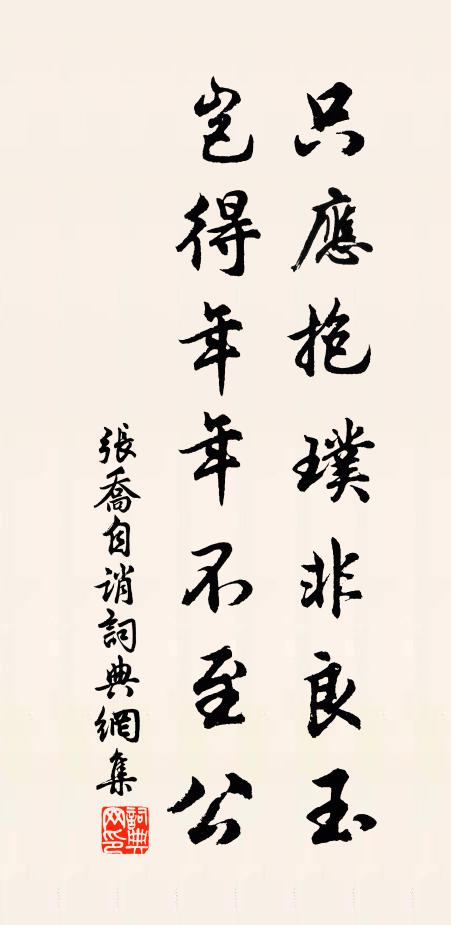 只應抱璞非良玉
豈得年年不至公
張喬自誚詞典網集
詞典網印